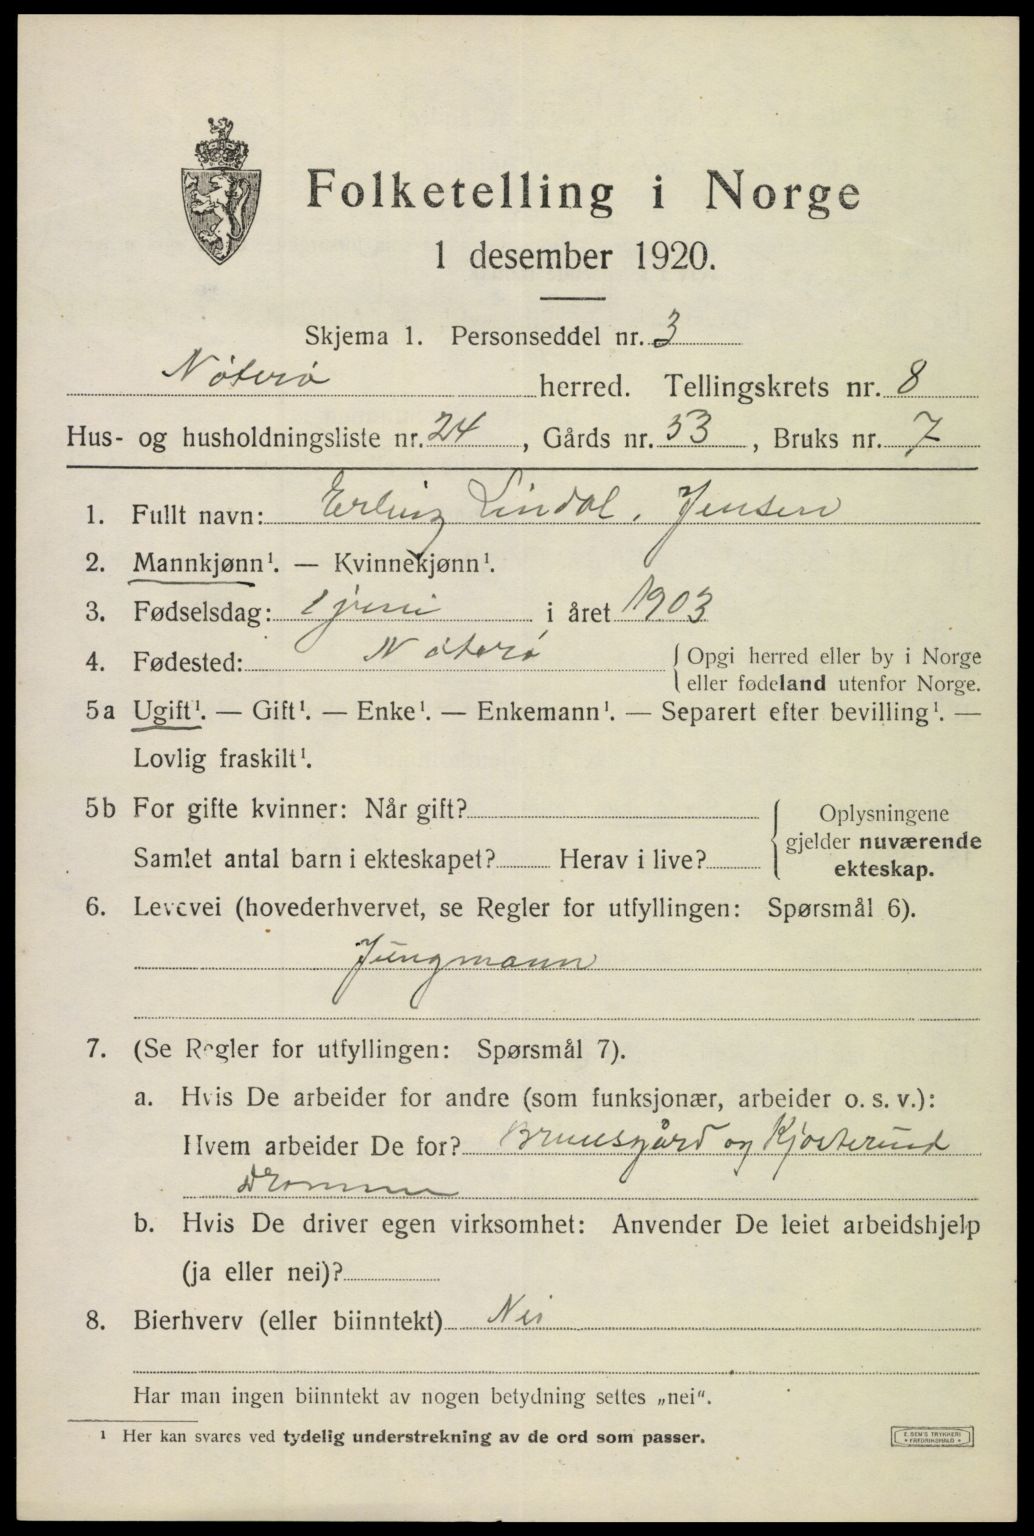 Folketelling i Norge
1 desember 1920.
Skjema 1. Personseddel nr. 3
Nøterø herred. Tellingskrets nr. 8
Hus- og husholdningsliste nr. 24, Gårds nr. 53, Bruks nr. 7
1. Fullt navn: Erling Lindal. Jensen
2. Mannkjønn¹. — Kvinnekjønn¹.
3. Fødselsdag: 1 juni i året 1903
4. Fødested: Nøterø {Opgi herred eller by i Norge
eller fødeland utenfor Norge.
5a Ugift¹. — Gift¹. — Enke¹. — Enkemann¹. — Separert efter bevilling¹. —
Lovlig fraskilt¹.
5b For gifte kvinner: Når gift?
Samlet antal barn i ekteskapet? Herav i live?
{Oplysningene
gjelder nuværende
ekteskap.
6. Levevei (hovederhvervet, se Regler for utfyllingen: Spørsmål 6).
Jungmann
7. (Se Regler for utfyllingen: Spørsmål 7).
a. Hvis De arbeider for andre (som funksjonær, arbeider o. s. v.):
Hvem arbeider De for? Bruusgård og Kjosterud
Drammen
b. Hvis De driver egen virksomhet: Anvender De leiet arbeidshjelp
(ja eller nei)?
8. Bierhverv (eller biinntekt) Nei
Har man ingen biinntekt av nogen betydning settes „nei“.
¹ Her kan svares ved tydelig understrekning av de ord som passer.
E. SEM'S TRYKKERI
FREDRIKSHALD